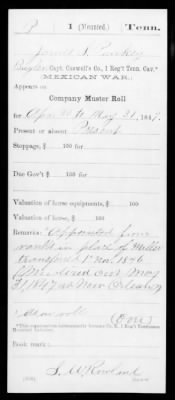 P 1 (Mounted.) Tenn.
James S.
Bugler, Capt. Caswell's Co., 1 Reg't Tenn. Cav.*
MEXICAN WAR.
Appears on
Company Muster Roll
for to May 31, 1847.
Present or absent Present
Stoppage, $ 100 for
Due Gov't $ 100 for
Valuation of horse equipments, $ 100
Valuation of horse, $ 100
Remarks: Appointed from
ranks in place of Miller
transferred 1st Nov 1846
Mustered out May
31, 1847 at New Orleans
(Over)
*This organization subsequently became Co. K, 1 Reg't Tennessee
Mounted Infantry.
Book mark:
S. W. Rowland
Copyist.